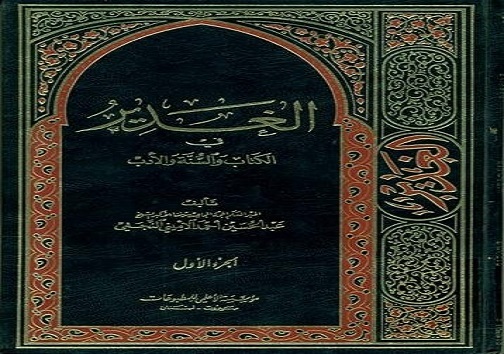 الغدير
في
الكتاب والسنة والأدب
تأليف
عبد الحسين أحمد الأميني النجفي
الجزء الأول
مؤسسة الأعلمي للمطبوعات
بيروت - لبنان
الغدير